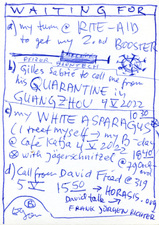 WAITING FOR
a) my turn @ RITE-AID
to get my 2nd BOOSTER
PFIZER BIONTECH
b) Gilles Sabrié to call me from
his QUARANTINE in
GUANGZHOU 4 V 2022
10 30
c) my WHITE ASPARAGUS
(I treat myself → my B-day
@ Café KaBa 4 V 2022
with Jägerschnitzel 18 40
d) Call from David Fead @ 319
5 V 15 50 → HORASIS.org
David talks →
FRANK JÜRGEN RICHTER